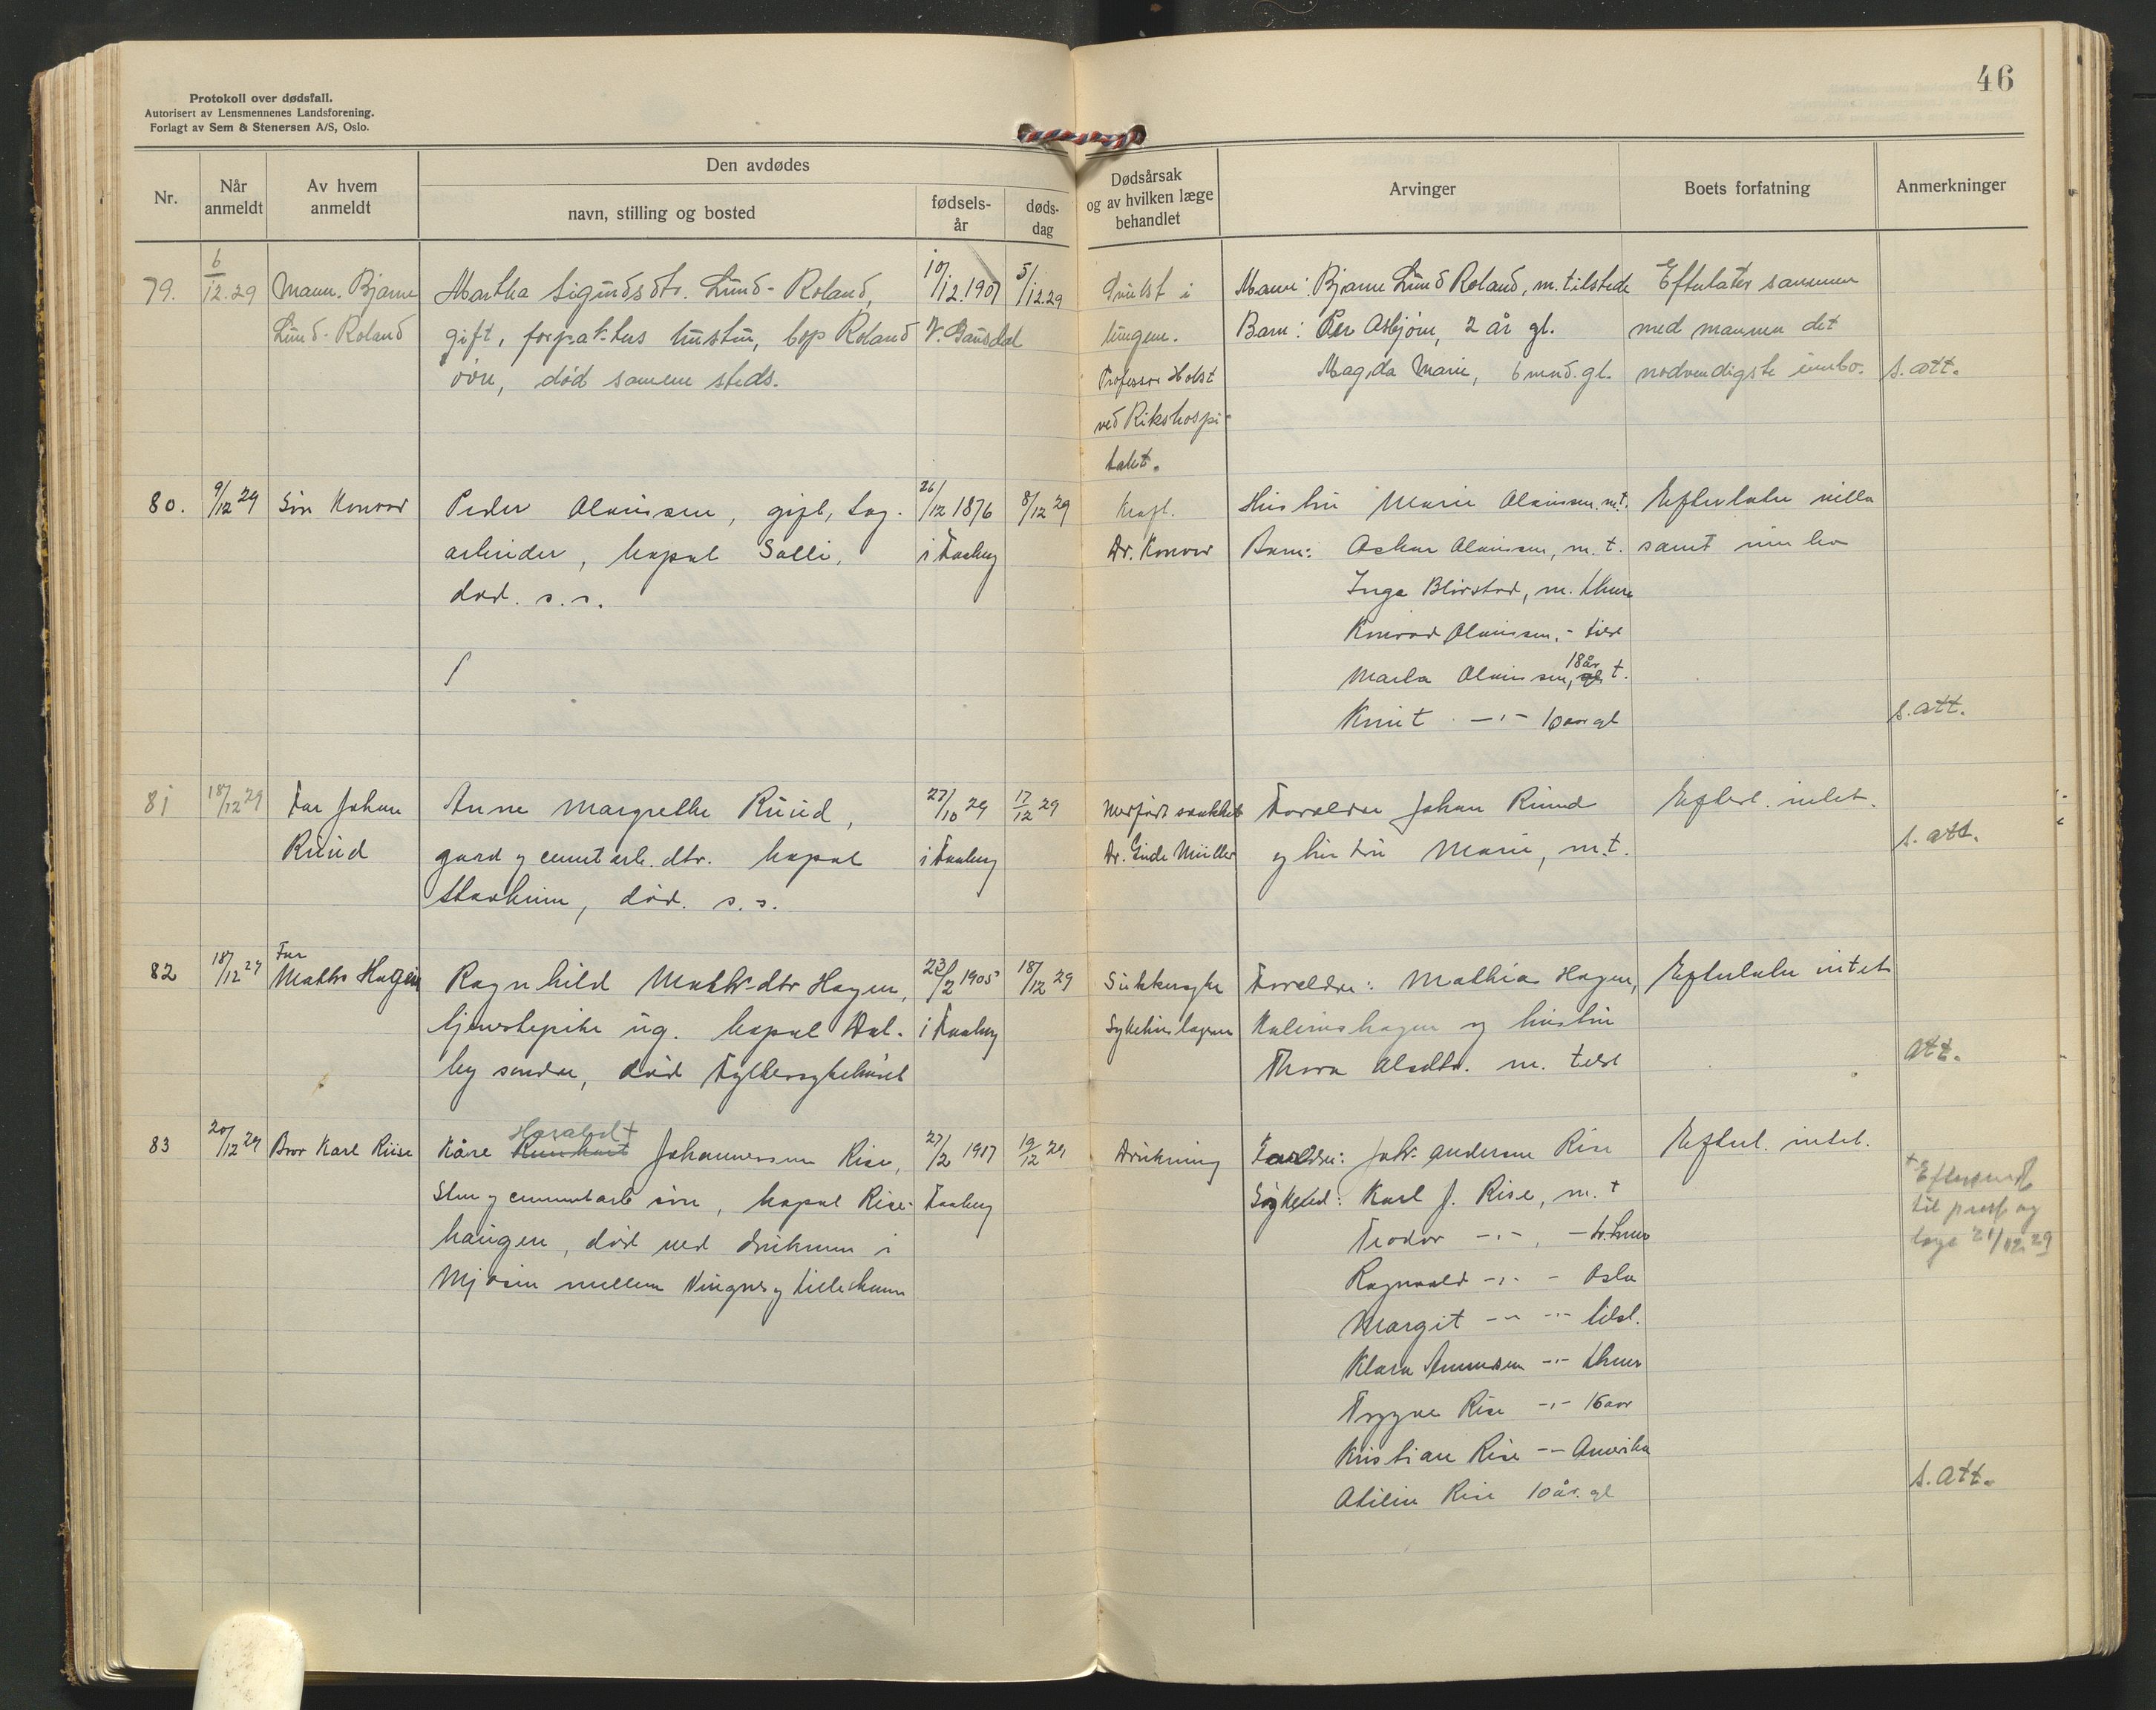 46
Protokoll over dødsfall.
Autorisert av Lensmennenes Landsforening.
Forlagt av Sem & Stenersen A/S, Oslo.
Nr.
Når anmeldt
Av hvem anmeldt
Den avdødes
navn, stilling og bosted
fødsels-år
døds-dag
Dødsårsak og av hvilken læge behandlet
Arvinger
Boets forfatning
Anmerkninger
79.
6/12.29
Mann. Bjarne
Lund-Roland
Martha Sigurdsdtr. Lund-Roland,
gift, forpakters hustru, bop Roland
övre, død samme steds.
10/12.1907
V. Gausdal
5/12.29
Svulst i
lungen.
Professor Holst
ved Rikshospi-
talet.
Mann: Bjarne Lund Roland, m. tilstede
Barn: Per Asbjörn, 2 år gl.
Magda Marie, 6 mnd. gl.
Efterlater sammen
med mannen det
nødvendigste innbo.
s. att.
80.
9/12 29
Sön Konrad
Peder Olaussen, gift, sag-
arbeider, bopæl Salli,
død. s.s.
26/12 1876
i Faaberg
8/12 29
Kreft.
Dr. Konow
Hustru Marie Olaussen m.t.
Barn: Oskar Olaussen, m. t.
Inga Blörstad, m. Lhmr
Konrad Olaussen, - tilst
Marta Olaussen, 18 år t.
Knut -"- 10 aar gl
Efterlater villa
samt innbo
s. att.
81
18/12 29
Far Johan
Ruud
Anne Margrethe Ruud,
gard og cementarb. dtr. bopæl
Storheim, död. s.s.
27/10 29
i Faaberg
17/12 29
Medfödt svakhet
Dr. Gude Müller
Foreldre Johan Ruud
og hustru Marie, m.t.
Efterl. intet.
s. att.
82
18/12 29
Far
Maths Hagen
Ragnhild Mathsdtr Hagen,
tjenestepike ug. bopæl Dal-
by sondre, död Fylkessykehuset
23/2 1905
i Faaberg
18/12 29
Sukkersyke
Sykehuslægen
Foreldre: Mathias Hagen,
Kalinshagen og hustru
Thora Olsdtr. m. tilst
Efterlater intet
att.
83
20/12 29
Bror Karl Riise
Harald +
Kåre Johannessen Rise,
Sten og cementarb sön, bopæl Rise-
haugen, död ved drukning i
Mjösen mellem Vingnes og Lillehamm
27/2 1917
Faaberg
19/12 29
Drukning
Foreldre: Johs Andersen Rise
Söskend: Karl J. Rise, m. t
Teodor -"-, - Lr.hmr
Ragnvald -"- - Oslo
Margit -"- -"- tilst.
Klara Amundsen -"- Lhmr
Trygve Rise -"- 16 aar
Kristian Rise -"- Amerika
Otilie Rise 10 år. gl
Efterl. intet.
+ Eftersendt
til prest og
læge 21/12 29
s. att.